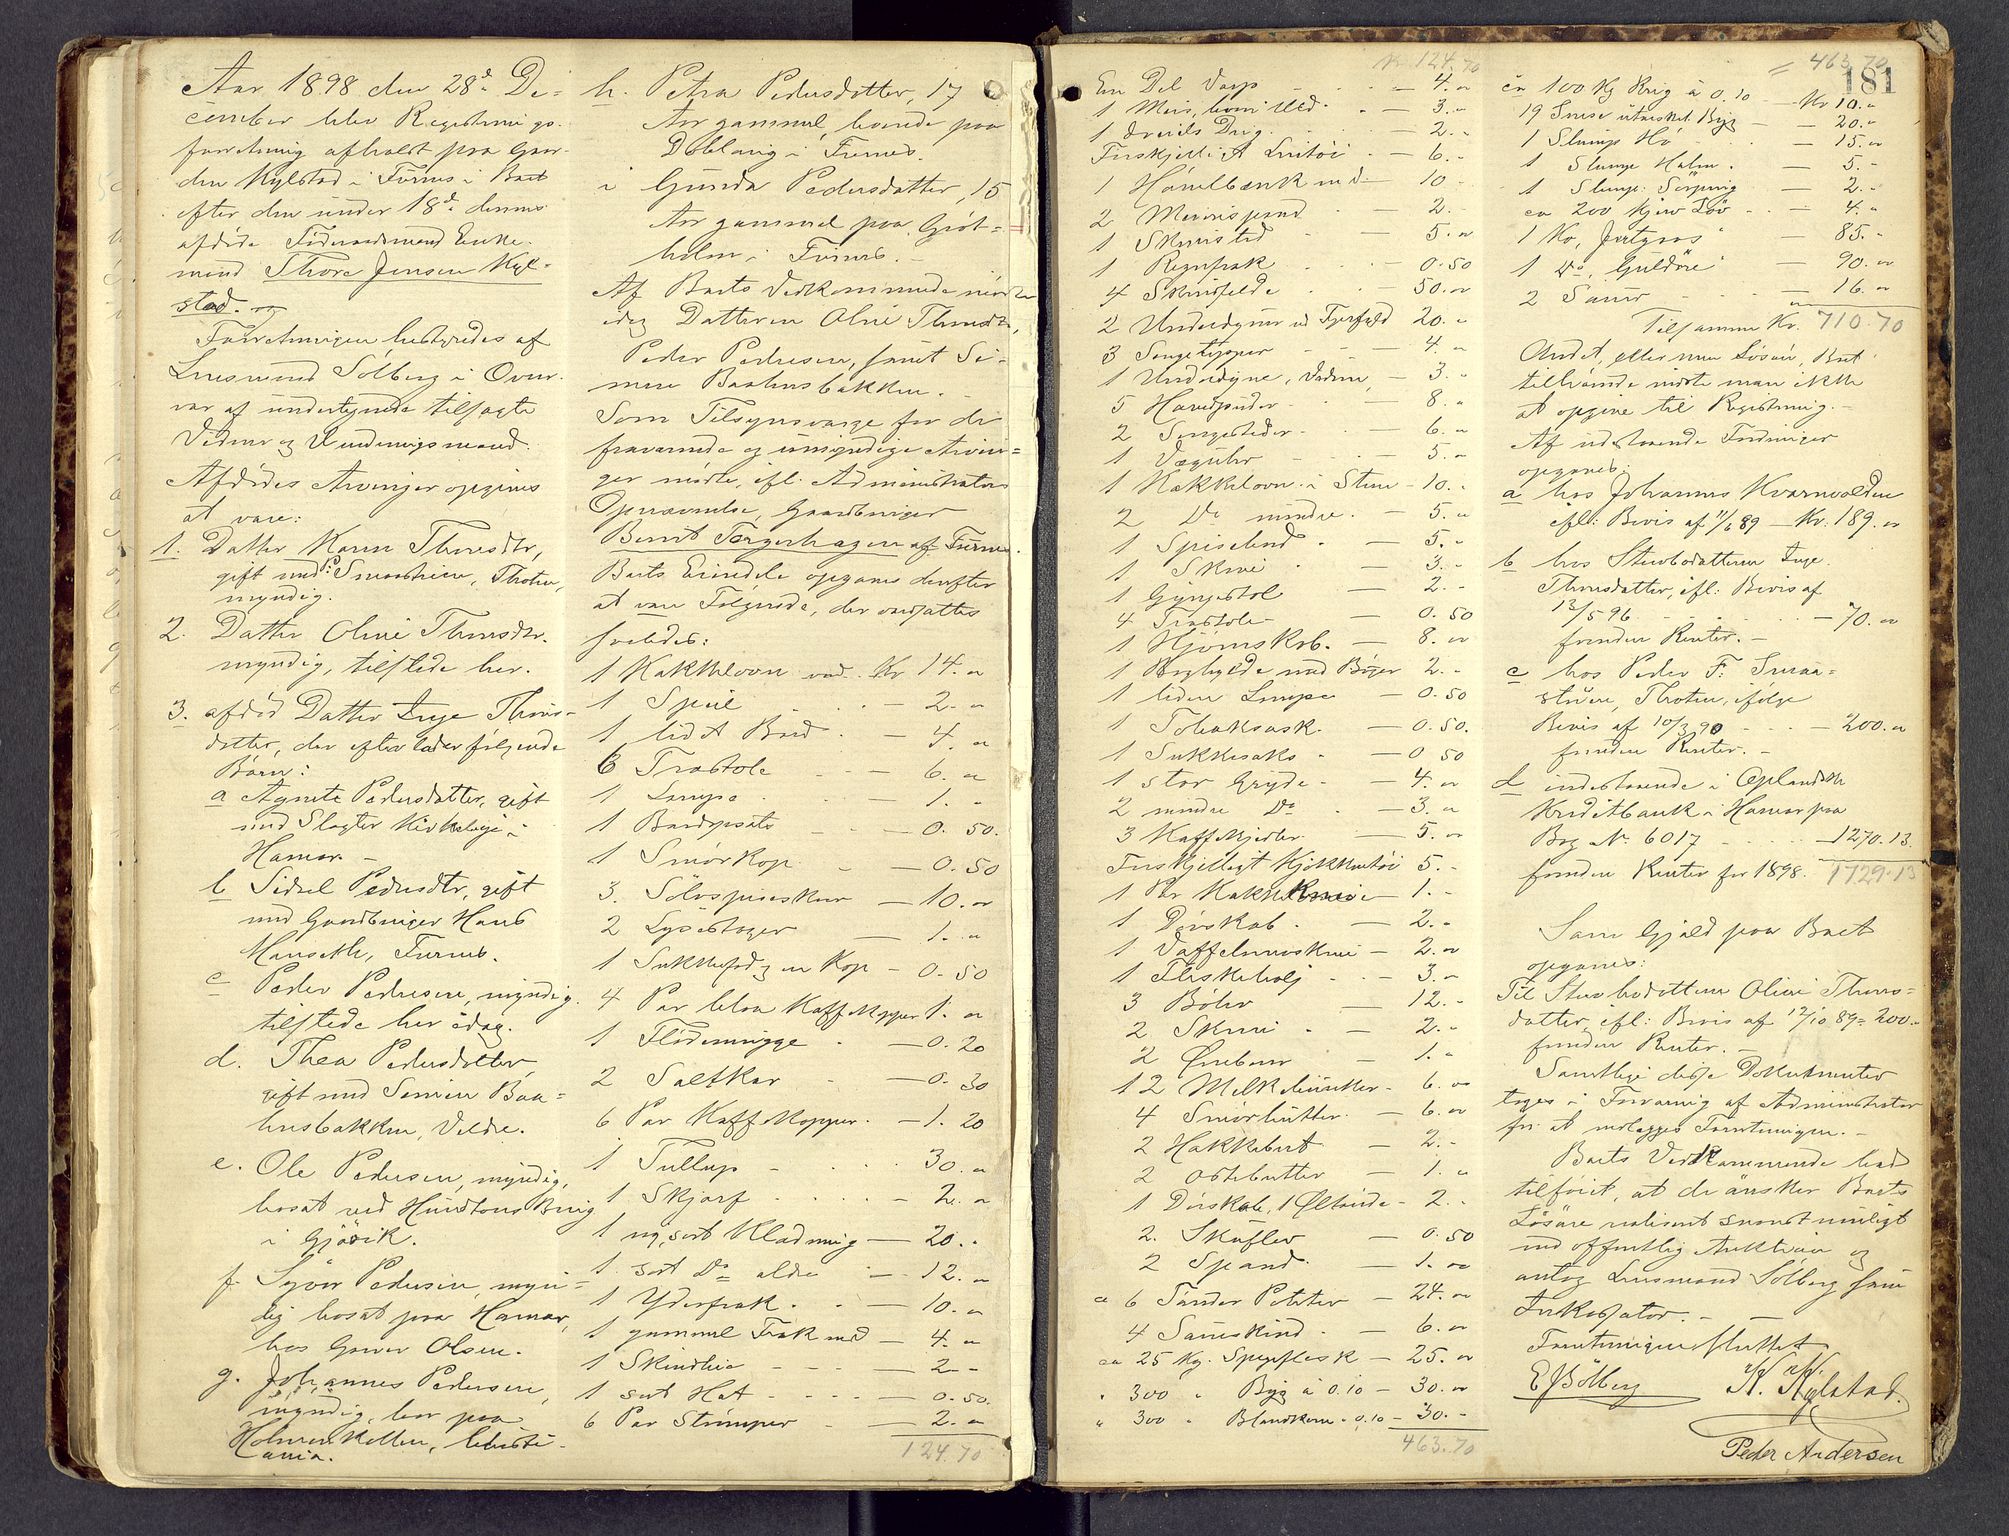 Aar 1898 den 28de De-
cember blev Registrerings-
forretning afholdt paa Gaar-
den Kylstad i Furnes i Boet
efter den under 18de dennes
afdøde Føderaadsmand Enke-
mand Thore Jensen Kyl-
stad.
Forretningen bestyredes af
Lensmand Sölberg i Over-
vær af undertegnede tilsagte
Vidner og Vurderingsmænd.
Afdødes Arvinger opgives
at være:
1. Datter Karen Thoresdtr,
gift med P. Smestuen, Thoten,
myndig.
2. Datter Oline Thoresdtr.
myndig, tilstede her.
3. afdød Datter Inge Thores-
datter, der efterlader følgende
Børn:
a Agnete Pedersdatter, gift
med Slagter Kirkeby i
Hamar. -
b Sidsel Pedersdtr, gift
med Gaardbruger Hans
Hanseth, Furnes.
c Peder Pedersen, myndig.
tilstede her idag.
d. Thea Pedersdatter,
gift med Simen Baa-
husbakken, Veldre.
e. Ole Pedersen, myndig,
bosat ved Hundtons Brug
i Gjövik.
f. Syver Pedersen, myn-
dig bosat paa Hamar,
hos Gørver Olsen.
g. Johannes Pedersen,
myndig, bor paa
Holmenkollen, Christi-
ania.
h. Petra Pedersdatter, 17
Aar gammel, boende paa
Dobloug i Furnes.
i Gunda Pedersdatter, 15
Aar gammel paa Grøt-
holm i Furnes. -
Af Boets Vedkommende mødte
idag Datteren Oline Thoresdtr,
Peder Pedersen, samt Si-
men Baahusbakken. -
Som Tilsynsværge for de
fraværende og umyndige Arvin-
ger mødte, ifl. Administrators
Opnævnelse, Gaardbruger
Bernt Torgerhagen af Furnes.
Boets Eiendele opgaves derefter
at være Følgende, der ansattes
saaledes:
1 Kakkelovn ved Kr 14. "
1 Speil - 2. "
1 lidet Bord - 4. "
6 Træstole - 6. "
1 Lampe - 1. "
1 Bordopsats - 0. 50.
1 Smör Kop - 0. 50
3. Sölvspiseskeer - 10. "
2 Lysestager - 1. "
1 Sukkerfad og en Kop - 0. 50
4 Par blaa Kaffekopper 1. "
1 Flödemugge - 0. 20
2 Saltkar - 0. 30
6 Par Kaffekopper. - 1. 20
1 Tullup - 30. "
1 Skjærf - 2. "
1 ny, sort Klædning - 20. "
1 sort Do ældre - 12. "
1 Yderfrak. - 10. "
1 gammel Frak med - 4. "
1 Skindhue - 2 -
1 sort Hat - 0. 50.
6 Par Strömper - 2. "
124. 70
Kr. 124. 70
En Del Varp - 4. "
1 Meis, hvori Uld. - 3. "
1 dreiels Dug. - 2. "
Forskjelligt Lintöi - 6. -
1 Hövelbænk med - 10 -
2 - 2. -
1 Skrivested - 5. "
1 Regnfrak - 0. 50
4 Skindfelde - 50. "
2 Underdyner ed Fjærfyld 20. "
3 Sengetepper - 4. "
1 Underdyne, Vadme, - 3. "
5 Hovedputer - 8. "
2 Sengesteder - 6. "
1 Vægguhr - 5. "
1 Kakkelovn i Stuen - 10. "
2 Do mindre. - 5. "
1 Spisebord - 5. -
1 Skrin - 3. -
1 Gyngestol - 2. -
4 Træstole - 0. 50
1 Hjørneskab. - 8. "
1 Boghylde med Böger 2. -
1 liden Lampe - 0. 50
1 Tobaksask. - 0. 50.
1 Sukkersaks - 0. 50
1 stor Gryde - 4. "
2 mindre Do - 3. "
3 Kaffekjedler. - 5. "
Forskjelligt Kjökkentöi 5. -
1 Par - 1. -
1 Dørskab. - 2. -
1 Vaffelmaskine - 2. "
1 Fleskebolj - 3. "
3 Böler - 12. -
2 Skrin - 2. -
2 - 1. "
12 Melkebunker - 6. "
4 Smørbutter. - 6. "
2 Hakkebret - 2. -
2 Ostebutter - 1. "
1 Dørskab, 1 Øltønde - 2. -
2. Skufler - 0. 50
2 Spand. - 1. "
ca 6 Tønder Poteter - 24. "
4 Saueskind - 6. "
ca 25 Kg. Spegeflesk - 25. "
" 300 " Byg à 0. 10 - 30. "
" 300 " Blandkorn - 0,10 - 30. -
463. 70
463. 70
181
ca 100 Kg Rug à 0. 10 - Kr 10. "
19 Snese utærsket Byg - 20. "
1 Slump Hö - 15. "
1 Slump Halm. - 5. -
1 Slump - 2. -
ca 200 Kjerv Løv - 4. "
1 Ko, - 85. -
1 Do, Guldöre - 90. "
2 Sauer - 16. "
Tilsammen Kr. 710. 70
Andet, eller mere Lösöre, Boet
tilhørende vidste man ikke
at opgive til Registrering. -
Af udestaaende Fordringer
opgaves:
a hos Johannes Kværnvolden
ifl: Bevis af 11/6 89 - Kr. 189. "
b hos Stervbodatteren Inge
Thoresdatter, ifl: Bevis af
13/5 96 - 70. "
foruden Renter. -
c hos Peder F. Smaa-
stuen, Thoten, ifølge
Bevis af 10/3 90 - 200. "
foruden Renter. -
d indestaaende i Oplandske
Kreditbank i Hamar paa
Bog No 6017 - 1270. 13.
foruden Renter for 1898. 1729. 13
Som Gjæld paa Boet
opgaves:
Til Stervbodatteren Oline Thores-
datter, ifl: Bevis af 12/10 89 = 200. -
foruden Renter. -
Samtlige disse Dokumenter
toges i Forvaring af Administrator
for at vedlægges Forretningen. -
Boets Vedkommende bad
tilføiet, at de ønsker Boets
Lösöre realiseret snarest muligt
ved offentlig Auktion og
antog Lensmand Sölberg som
Inkassator. -
Forretningen sluttet.
E Sölberg K. Kylstad.
Peder Andersen